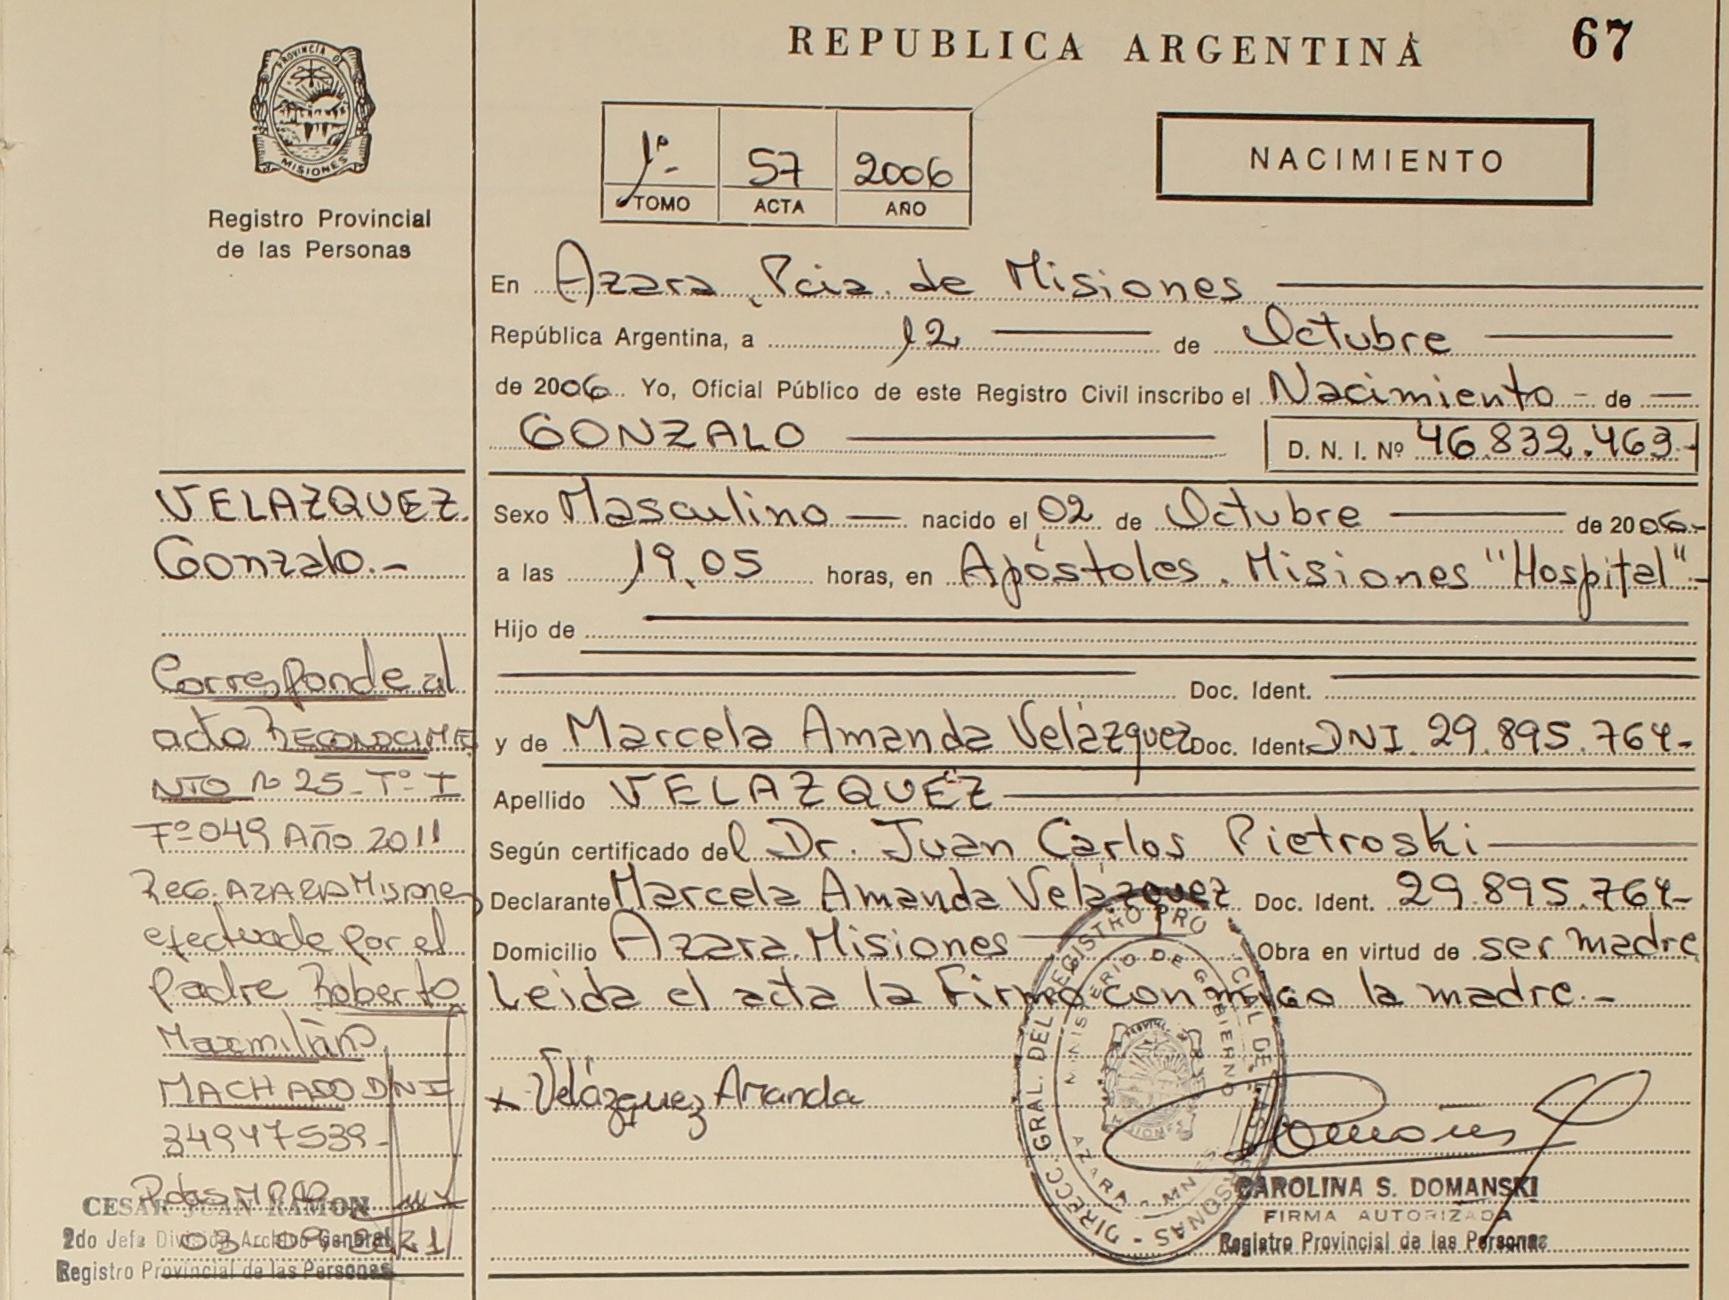 REPUBLICA ARGENTINA
67
PROVINCIA DE
MISIONES
Registro Provincial
de las Personas
1º- 57 2006
TOMO ACTA AÑO
NACIMIENTO
En Azara, Pcia. de Misiones
República Argentina, a 12 de Octubre
de 2006 Yo, Oficial Público de este Registro Civil inscribo el Nacimiento - de
GONZALO D. N. I. Nº 46.832.463-
Sexo Masculino nacido el 02 de Octubre de 2006.-
a las 19,05 horas, en Apóstoles. Misiones "Hospital".-
Hijo de
Doc. Ident.
y de Marcela Amanda Velázquez Doc. Ident. DNI. 29.895.764-
Apellido VELAZQUEZ
Según certificado del Dr. Juan Carlos Pietroski
Declarante Marcela Amanda Velázquez Doc. Ident. 29.895.764-
Domicilio Azara. Misiones Obra en virtud de ser madre
Leida el acta la Firma con migo la madre.-
x Velázquez Amanda
DIRECC. GRAL. DEL REGISTRO PRO CIVIL DE LAS PERSONAS -
MINISTERIO DE GOBIERNO
AZARA - MNES
CAROLINA S. DOMANSKI
FIRMA AUTORIZADA
Registro Provincial de las Personas
VELAZQUEZ
Gonzalo.-
Corresponde al
acto RECONOCIMIE
NTO Nº 25-Tº-I
Fº049 Año 2011
REG. AZARA Misiones
efectuado por el
padre Roberto
Maxmiliano
MACHADO DNI
34947539-
Pdas
CESAR JUAN RAMON
03 09 2021
2do Jefe División Archivo General
Registro Provincial de las Personas